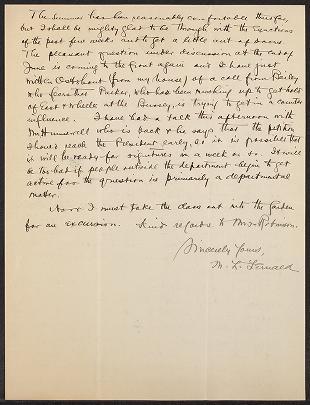 The summer has been reasonably comfortable thus far,
but I shall be mighty glad to be through with the vexations
of the past few weeks and to get a little out of doors.
The pleasant question under discussion at the end of
June is coming to the front again and I have just
written Osterhout (from my house) of a call from Bailey
who fears that Parker, who has been rushing up to get hold
of East & Wheeler at the Bussey, is trying to get in a counter
influence. I have had a talk this afternoon with
Mr Hunnewell who is back & he says that the petition
should reach the President early, so it is possible that
it will be ready for signatures in a week or so. It will
be too bad if people outside the department begin to get
active for the question is primarily a departmental
matter.
Now I must take the class out into the garden
for an excursion. Kind regards to Mrs Robinson.
Sincerely Yours,
M. L. Fernald